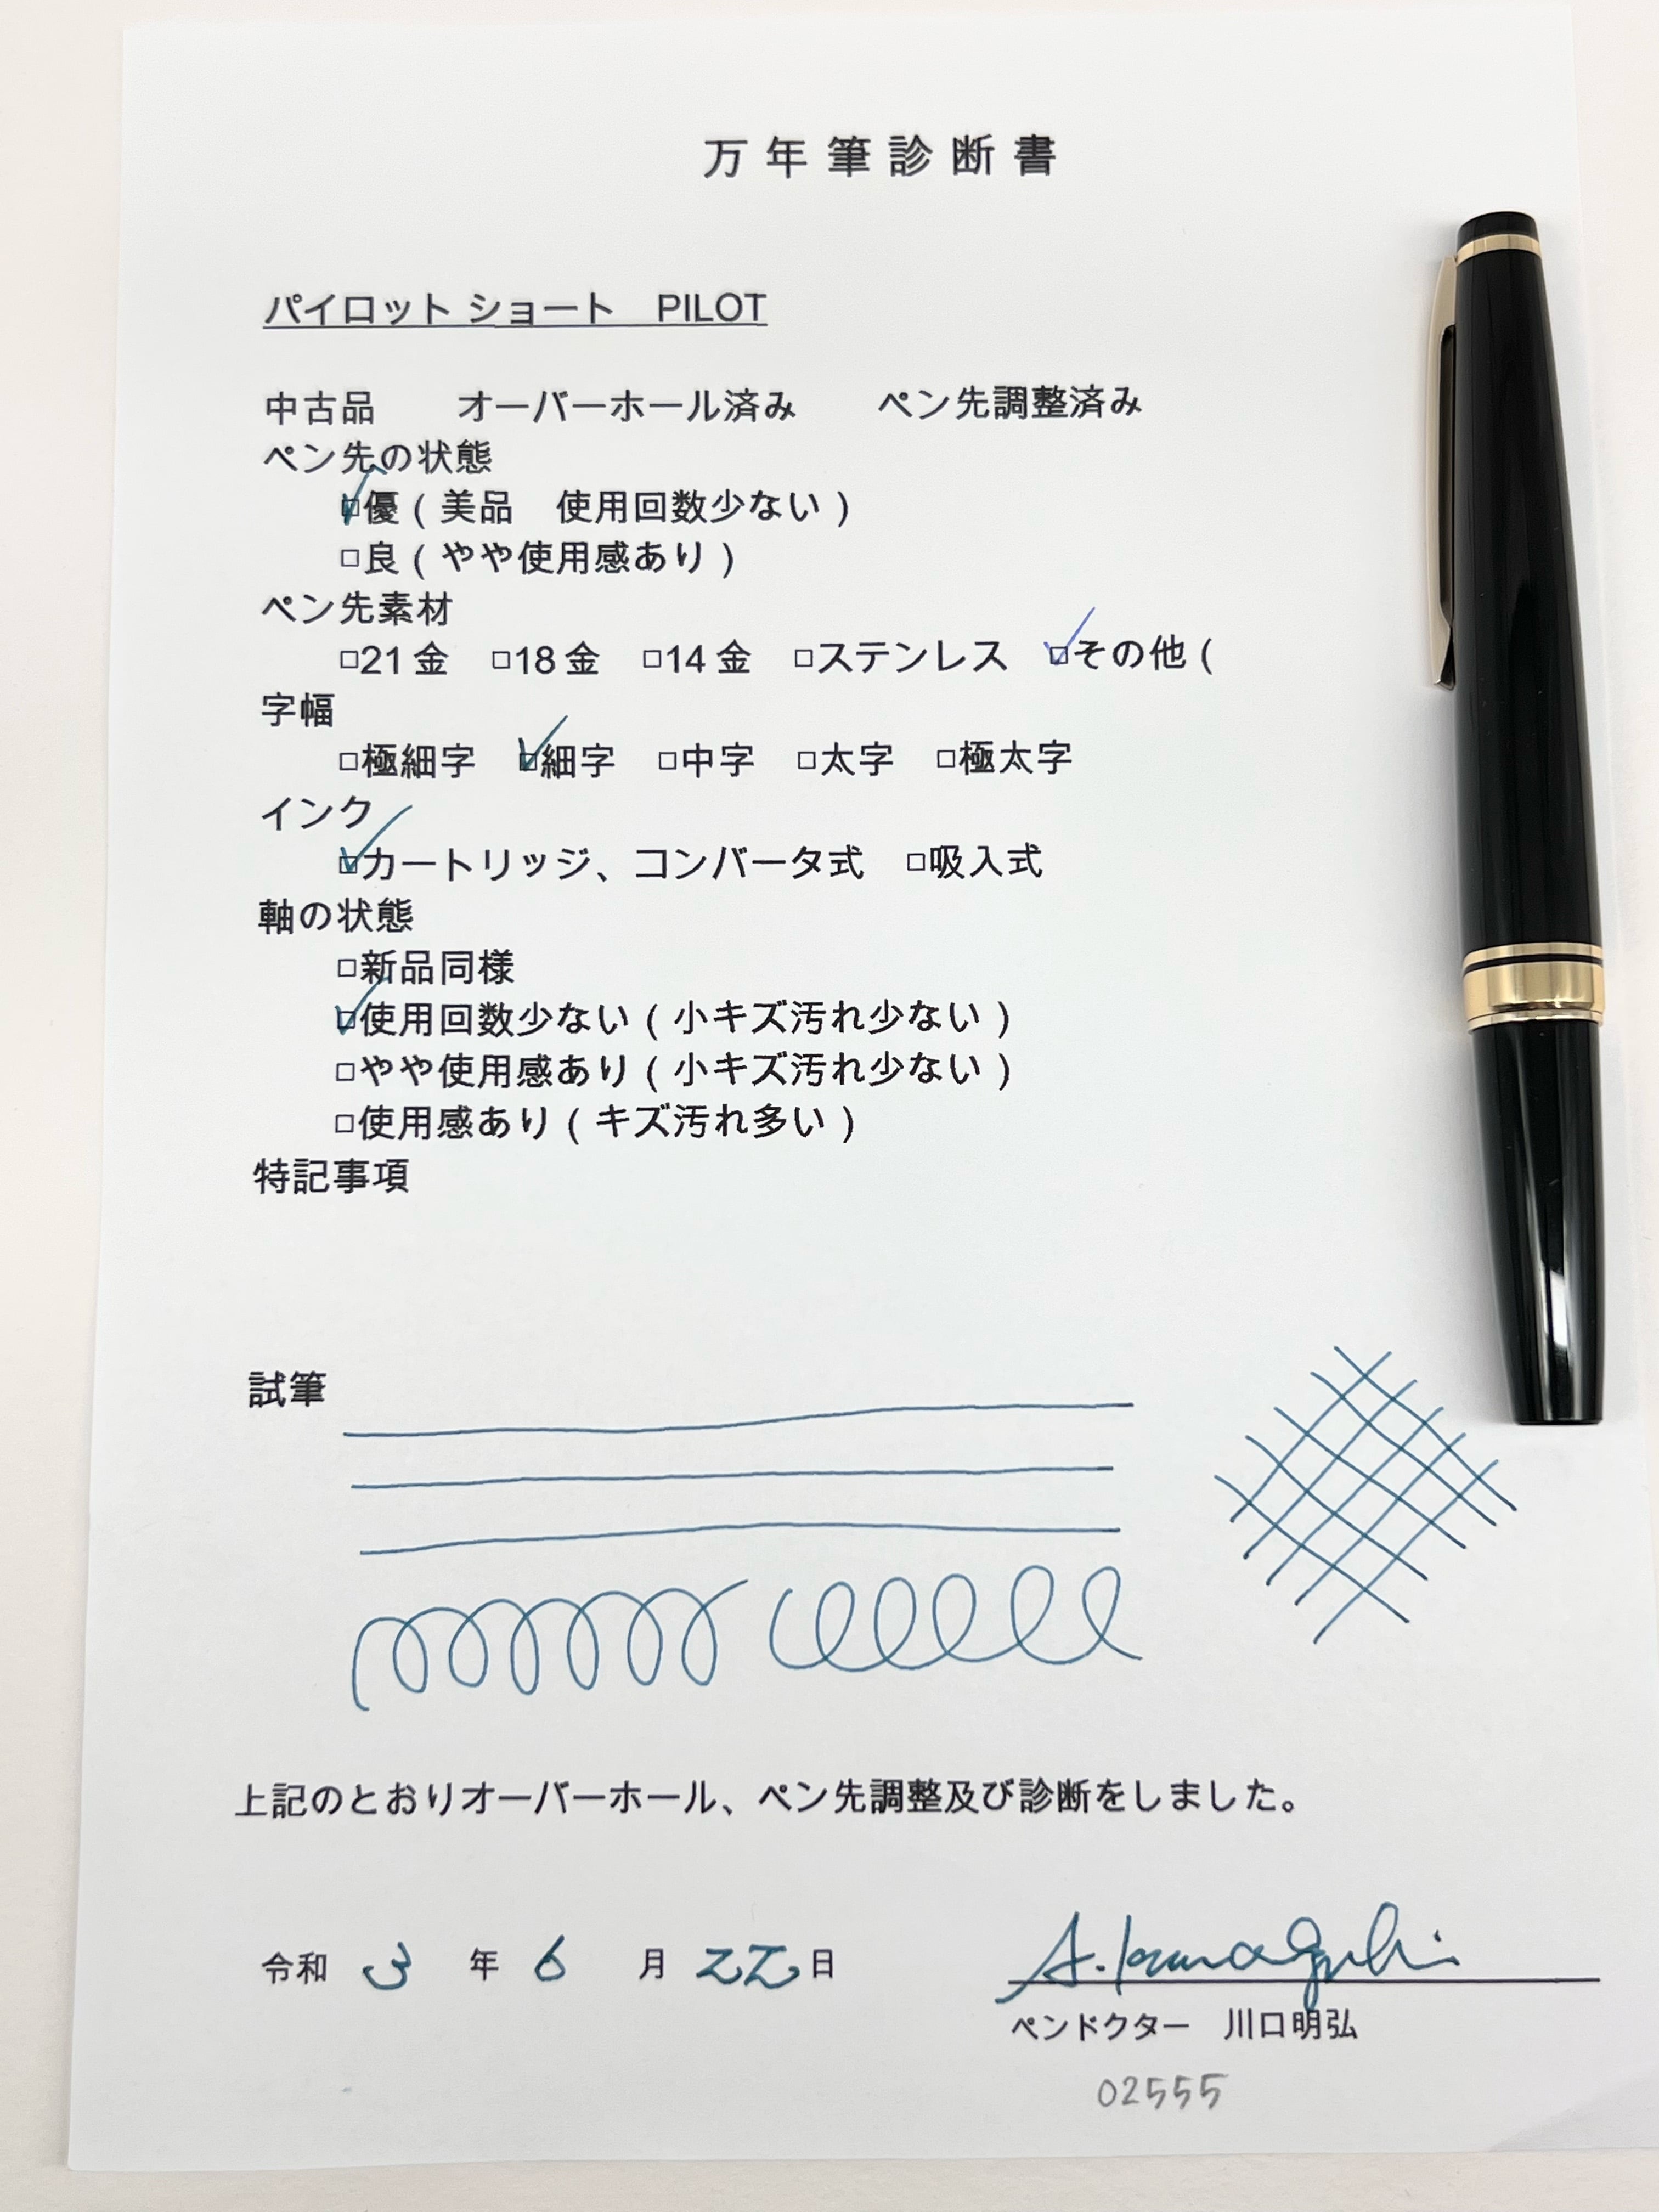 万年筆診断書
パイロット ショート　PILOT
中古品　　オーバーホール済み　　ペン先調整済み
ペン先の状態
☑優（美品　使用回数少ない）
□良（やや使用感あり）
ペン先素材
□21金　□18金　□14金　□ステンレス　☑その他（
字幅
□極細字　☑細字　□中字　□太字　□極太字
インク
☑カートリッジ、コンバータ式　□吸入式
軸の状態
□新品同様
☑使用回数少ない（小キズ汚れ少ない）
□やや使用感あり（小キズ汚れ少ない）
□使用感あり（キズ汚れ多い）
特記事項
試筆
上記のとおりオーバーホール、ペン先調整及び診断をしました。
令和 3 年 6 月 22 日
A. Kawaguchi
ペンドクター　川口明弘
02555